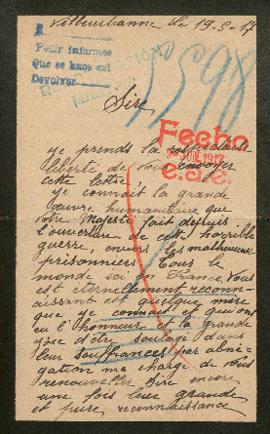 Villeurbanne le 19-5-17
A
Pedir informes
Que se haga así
Devolver
Sire
Fecho
1917
je prends la respectueuse
liberté de vous envoyer
cette lettre,
je connait la grande
œuvre humanitaire que
votre Majesté fait depuis
l'ouverture de cet horrible
guerre, envers les malheureux
prisonniers. Tous le
monde ici en France vous
est éternellement reconn-
aissant et quelque mère
que je connait et qui ont
eu l'honneur et la grande
joie d'être soulagé dans
leur souffrances par abné-
gation me charge de vous
renouveller Sire encore
une fois leur grande
et pure reconnaissance